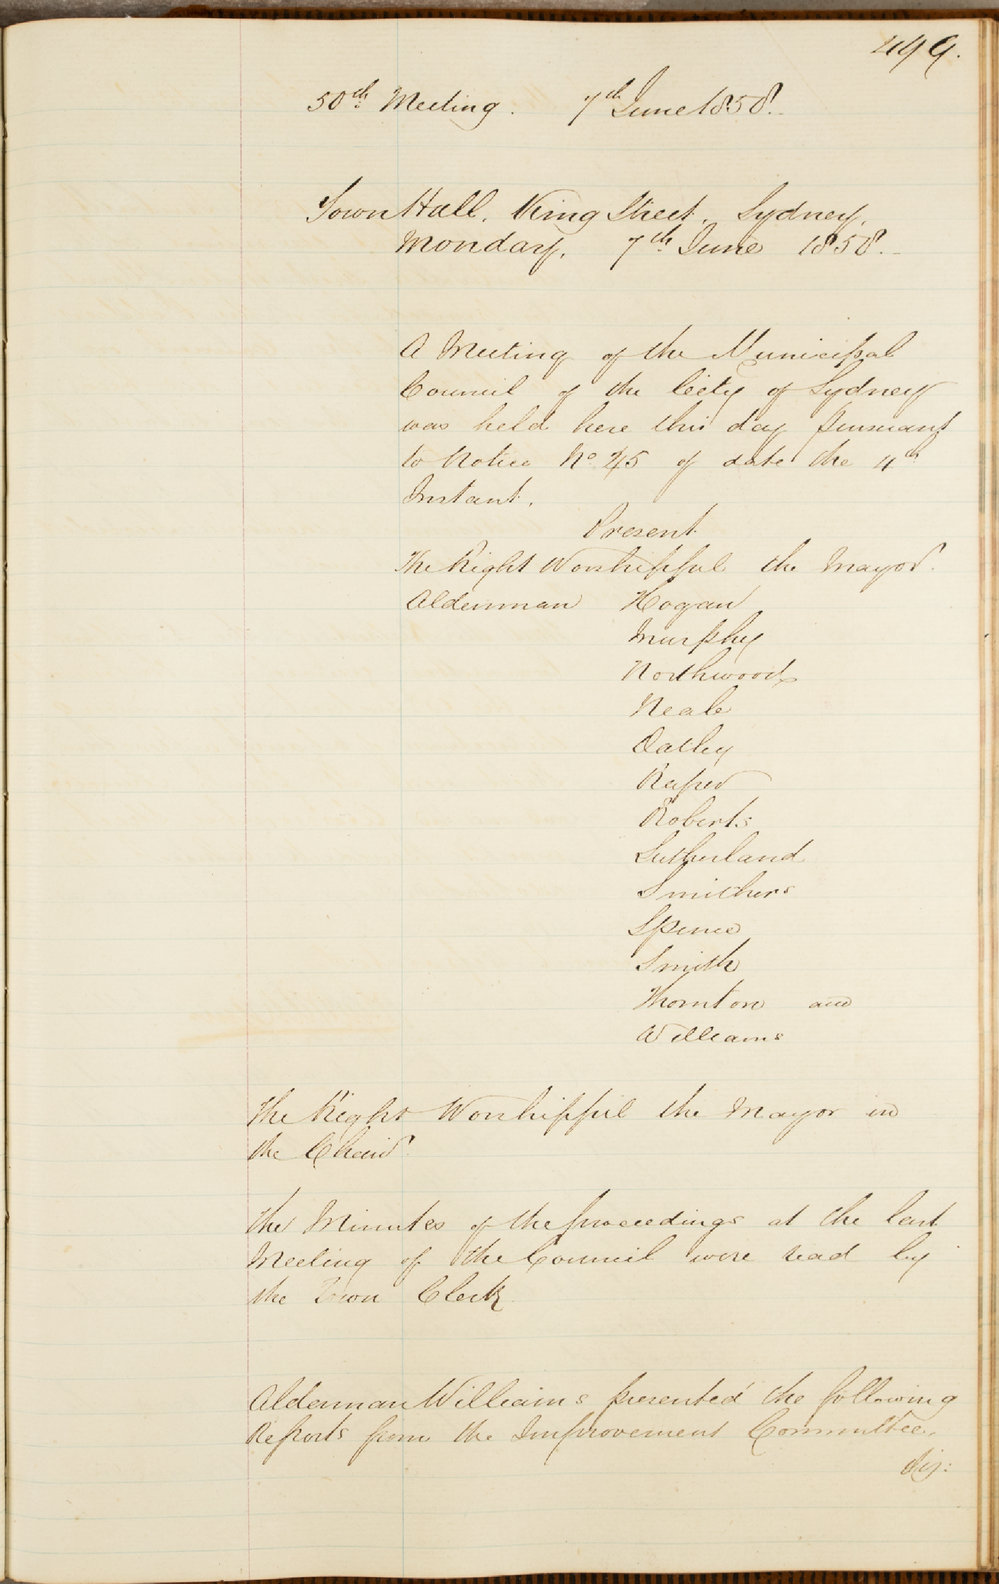 499.
50th Meeting. 7th June 1858.
Town Hall, King Street, Sydney,
Monday, 7th June 1858.
A Meeting of the Municipal
Council of the City of Sydney
was held here this day pursuant
to Notice No 45 of date the 4th
Instant.
Present
The Right Worshipful the Mayor.
Alderman Hogan
Murphy
Northwood
Neale
Oatley
Raper
Roberts
Sutherland
Smithers
Spence
Smith
Thornton and
Williams
The Right Worshipful the Mayor in
the Chair.
The Minutes of the proceedings at the last
Meeting of the Council were read by
the Town Clerk
Alderman Williams presented the following
Reports from the Improvement Committee,
viz: